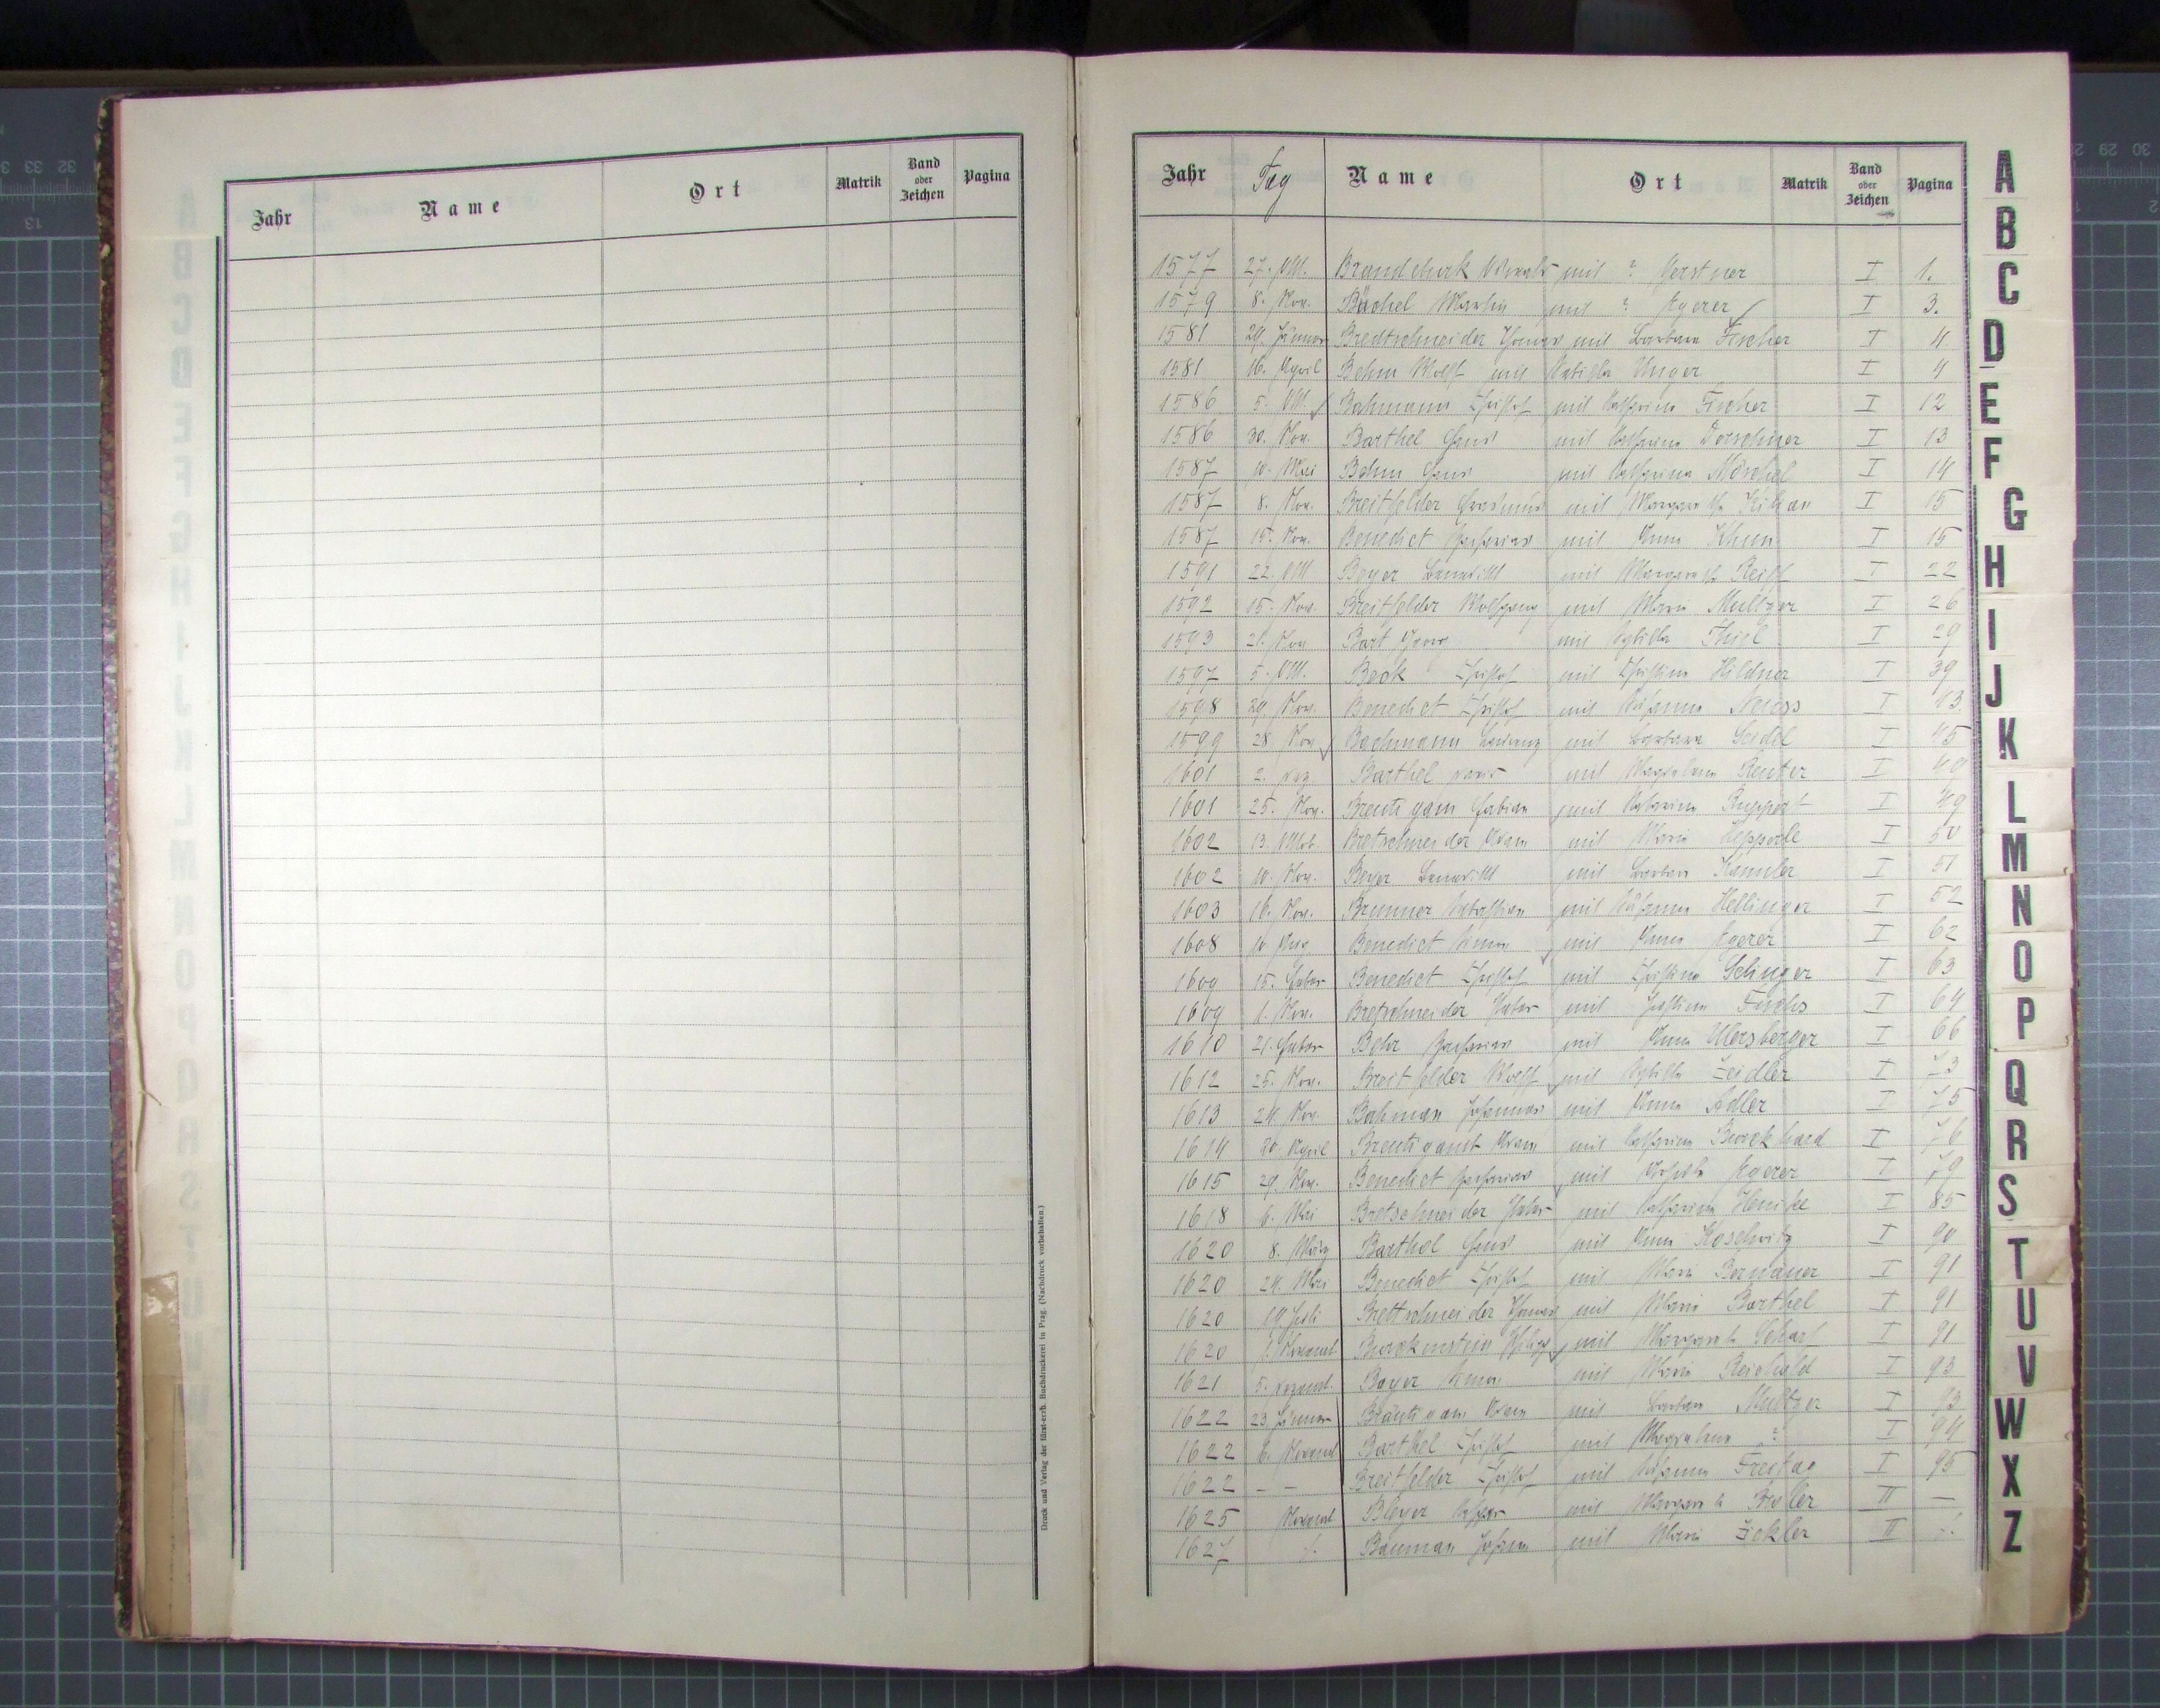 Jahr Name Ort Matrik Band oder Zeichen Pagina
Druck und Verlag der fürst-erzb. Buchdruckerei in Prag. (Nachdruck vorbehalten.)
Jahr Tag Name Ort Matrik Band oder Zeichen Pagina
1577 27. Okt. mit ? Gerstner I 1.
1579 8. Nov. Büchel Martin mit ? Agerer I 3.
1581 29. Jänner Bredtschneider Thomas mit Barbara Fischer I 4
1581 16. April Behm Wolf mit Unger I 4
1586 5. Okt. Bahmann Christof mit Katharina Fischer I 12
1586 30. Nov. Barthel Hans mit Katharina Dorschner I 13
1587 10. Mai Behm Hans mit Katharina I 14
1587 8. Nov. Breitfelder Erasmus mit Margaretha Kilian I 15
1587 15. Nov. Benedict Zacharias mit Anna Khun I 15
1591 22. Okt Beyer Benedikt mit Margaretha I 22
1592 15. Nov. Breitfelder Wolfgang mit Maria Multzer I 26
1593 21. Nov Bart Georg mit Thiel I 29
1597 5. Okt. Beck Christof mit Christina Hildner I 39
1598 29. Nov. Benedict Christof mit Susanna I 43
1599 28 Nov Bachmann Lorenz mit Barbara Seidel I 45
1601 2. Barthel mit Magdalena Reuter I
1601 25. Nov. Breutigam Fabian mit Katharina Ruppert I 49
1602 13. Oktob. Bretschneider Adam mit Maria Hepperle I 50
1602 10. Nov. Beyer Benedikt mit Barbara I 51
1603 16. Nov. Brunner Sebastian mit Susanna Hellinger I 52
1608 10. Benedict Simon mit Anna Agerer I 62
1609 15. Feber Benedict Christof mit Christina Selinger I 63
1609 1. Nov. Bretschneider Peter mit Justina Fuchs I 64
1610 21. Feber Behr Zacharias mit Anna Ulersberger I 66
1612 25. Nov. Breitfelder Wolf mit Zeidler I 73
1613 24. Nov. Bahman Johannes mit Anna Adler I 75
1614 20. April Breutigamt Adam mit Katharina Burckhard I 76
1615 29. Nov. Benedict Zacharias mit Agerer I 79
1618 6. Mai Bretschneider Peter mit Katharina I 85
1620 8. März Barthel Hans mit Anna Koschwitz I 90
1620 24. Mai Benedict Christof mit Maria I 91
1620 19 Juli Brettschneider Thomas mit Maria Barthel I 91
1620 1. Novemb. Burckenstein Philipp mit Margareth Scharf I 91
1621 5. Dezemb. Beyer Simon mit Maria Reichold I 93
1622 23 Jänner Bräutigam Adam mit Barbara Multzer I 93
1622 6. Novemb Barthel Christof mit Magdalena ? I 94
1622 - - Breitfelder Christof mit Susanna Freitag I 95
1625 Novemb Kaspar mit Margareth II —
1627 Bauman Johann mit Maria Zickler II
A
B
C
D
E
F
G
H
I
J
K
L
M
N
O
P
Q
R
S
T
U
V
W
X
Z